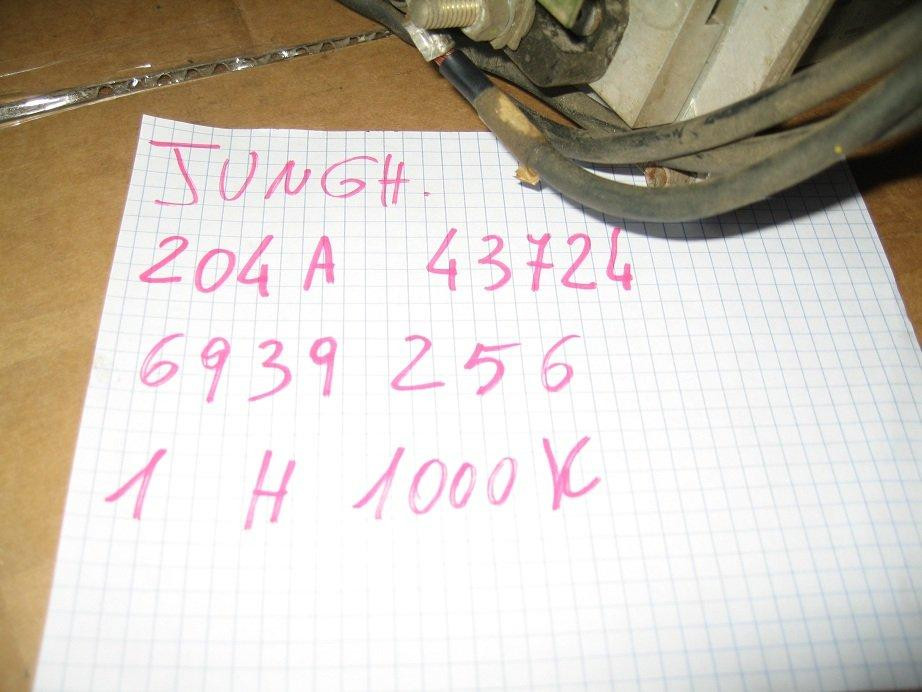 JUNGH.
204 A 43724
6939 256
1 H 1000 K